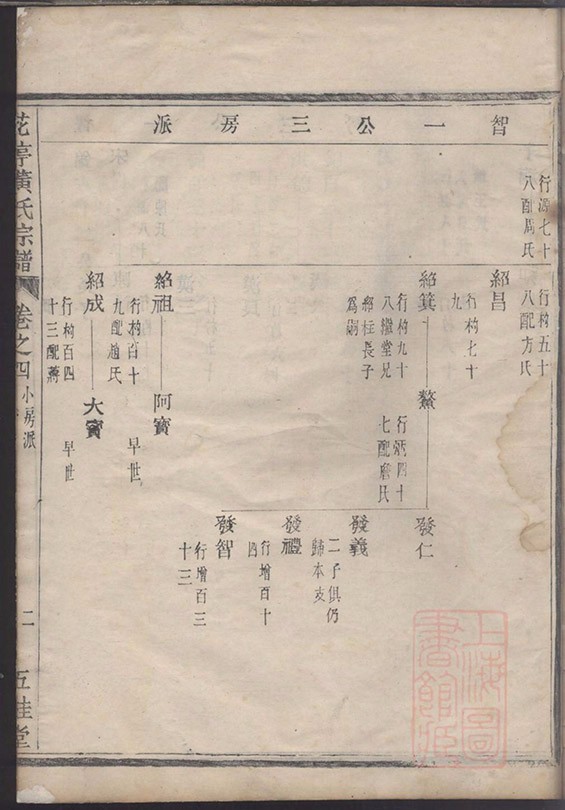 智一公三房派
行源七十
八配周氏
行构五十
八配方氏
紹昌
行构七十
九
紹箕
行构九十
八繼堂兄
紹桂長子
為嗣
鰲
行炳四十
七配詹氏
發仁
發義
二子俱仍
歸本支
發禮
行增百十
四
發智
行增百三
十三
紹祖
行构百十
九配趙氏
阿寶
早世
紹成
行构百四
十三配蔣
大寶
早世
花亭黃氏宗譜
卷之四
小房派
二
五桂堂
上海圖
書館藏